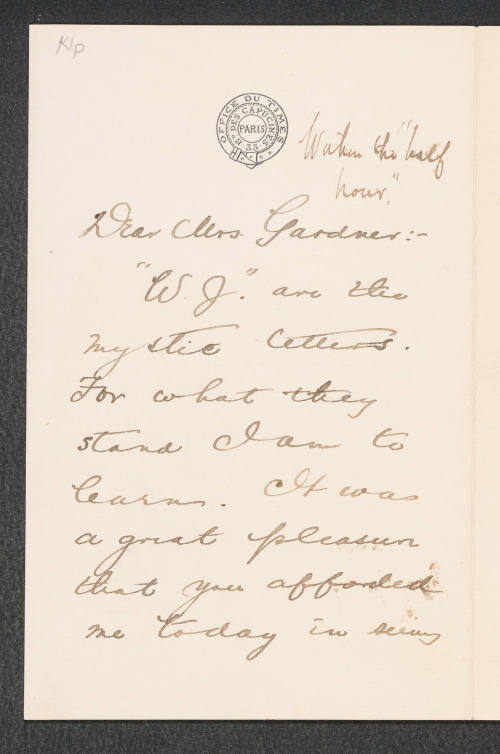 Klp
OFFICE DU TIMES
Bd DES CAPUCINES 35
PARIS
Within the "half
hour,"
Dear Mrs. Gardner:-
"W. J." are the
mystic letters.
For what they
stand I am to
learn. It was
a great pleasure
that you afforded
me today in seeing